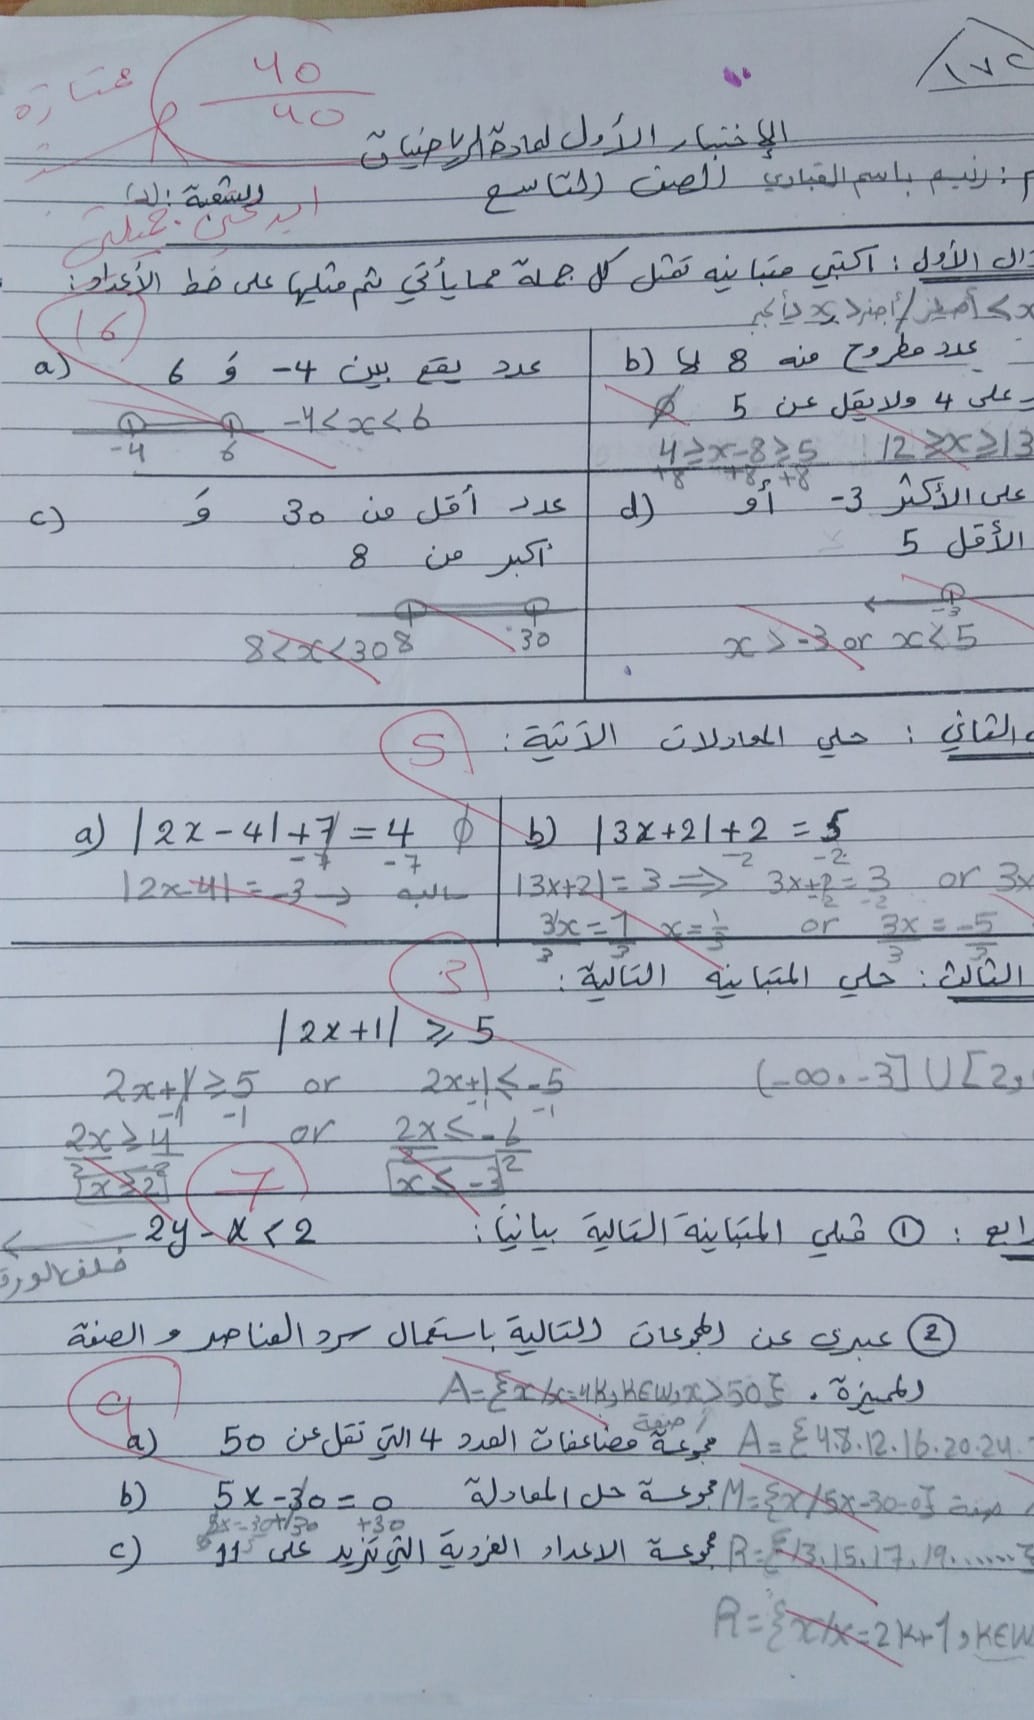 ١٧٢
40
40
ممتازة
الإختبار الأول لمادة الرياضيات
م: رنيم باسم القبادي للصف التاسع الشعبة: (د)
ال الأول: اكتبي متباينه تمثل كل جملة مما يأتي ثم مثليها على خط الأعداد:
16
a) عدد يقع بين 4- وَ 6
-4<x<6
-4 6
b) عدد مطروح منه 8 لا
على 4 ولا يقل عن 5 ∅
4≥x-8≥5 12≥x≥13
+8 +8 +8
c) عدد أقل من 30 وَ
أكبر من 8
8 30
8<x<30
d) على الأكثر 3- أو
الأقل 5
-3
x>-3 or x<5
الثاني: حلي المعادلات الآتية:
5
a) |2x-4|+7=4 ∅
-7 -7
|2x-4|=-3 → سالبه
b) |3x+2|+2=5
-2 -2
|3x+2|=3 ⇒ 3x+2=3 or 3x
-2 -2
3x=1 x=1/3 or 3x=-5
3 3 3 3
الثالث: حلي المتباينه التالية:
3
|2x+1| ≥ 5
2x+1≥5 or 2x+1≤-5 (-∞,-3]U[2,
-1 -1 -1 -1
2x≥4 or 2x≤-6
2 2 2 2
x≥2 x≤-3
7
ابع: ① مثلي المتباينة التالية بيانياً: 2y-x<2
خلف الورقة
② عبري عن المجموعات التالية باستعمال سرد العناصر و الصفة
المميزة. A={x/x=4k,k∈w,x>50}
9
صفة
a) مجموعة مضاعفات العدد 4 التي تقل عن 50 A={4.8.12.16.20.24.
b) مجموعة حل المعادلة 5x-30=0 M={x/5x-30=0} صفة
5x-30+30 +30
c) مجموعة الاعداد الفردية التي تزيد على 11 R={13.15.17.19......}
R={x/x=2k+1,k∈w